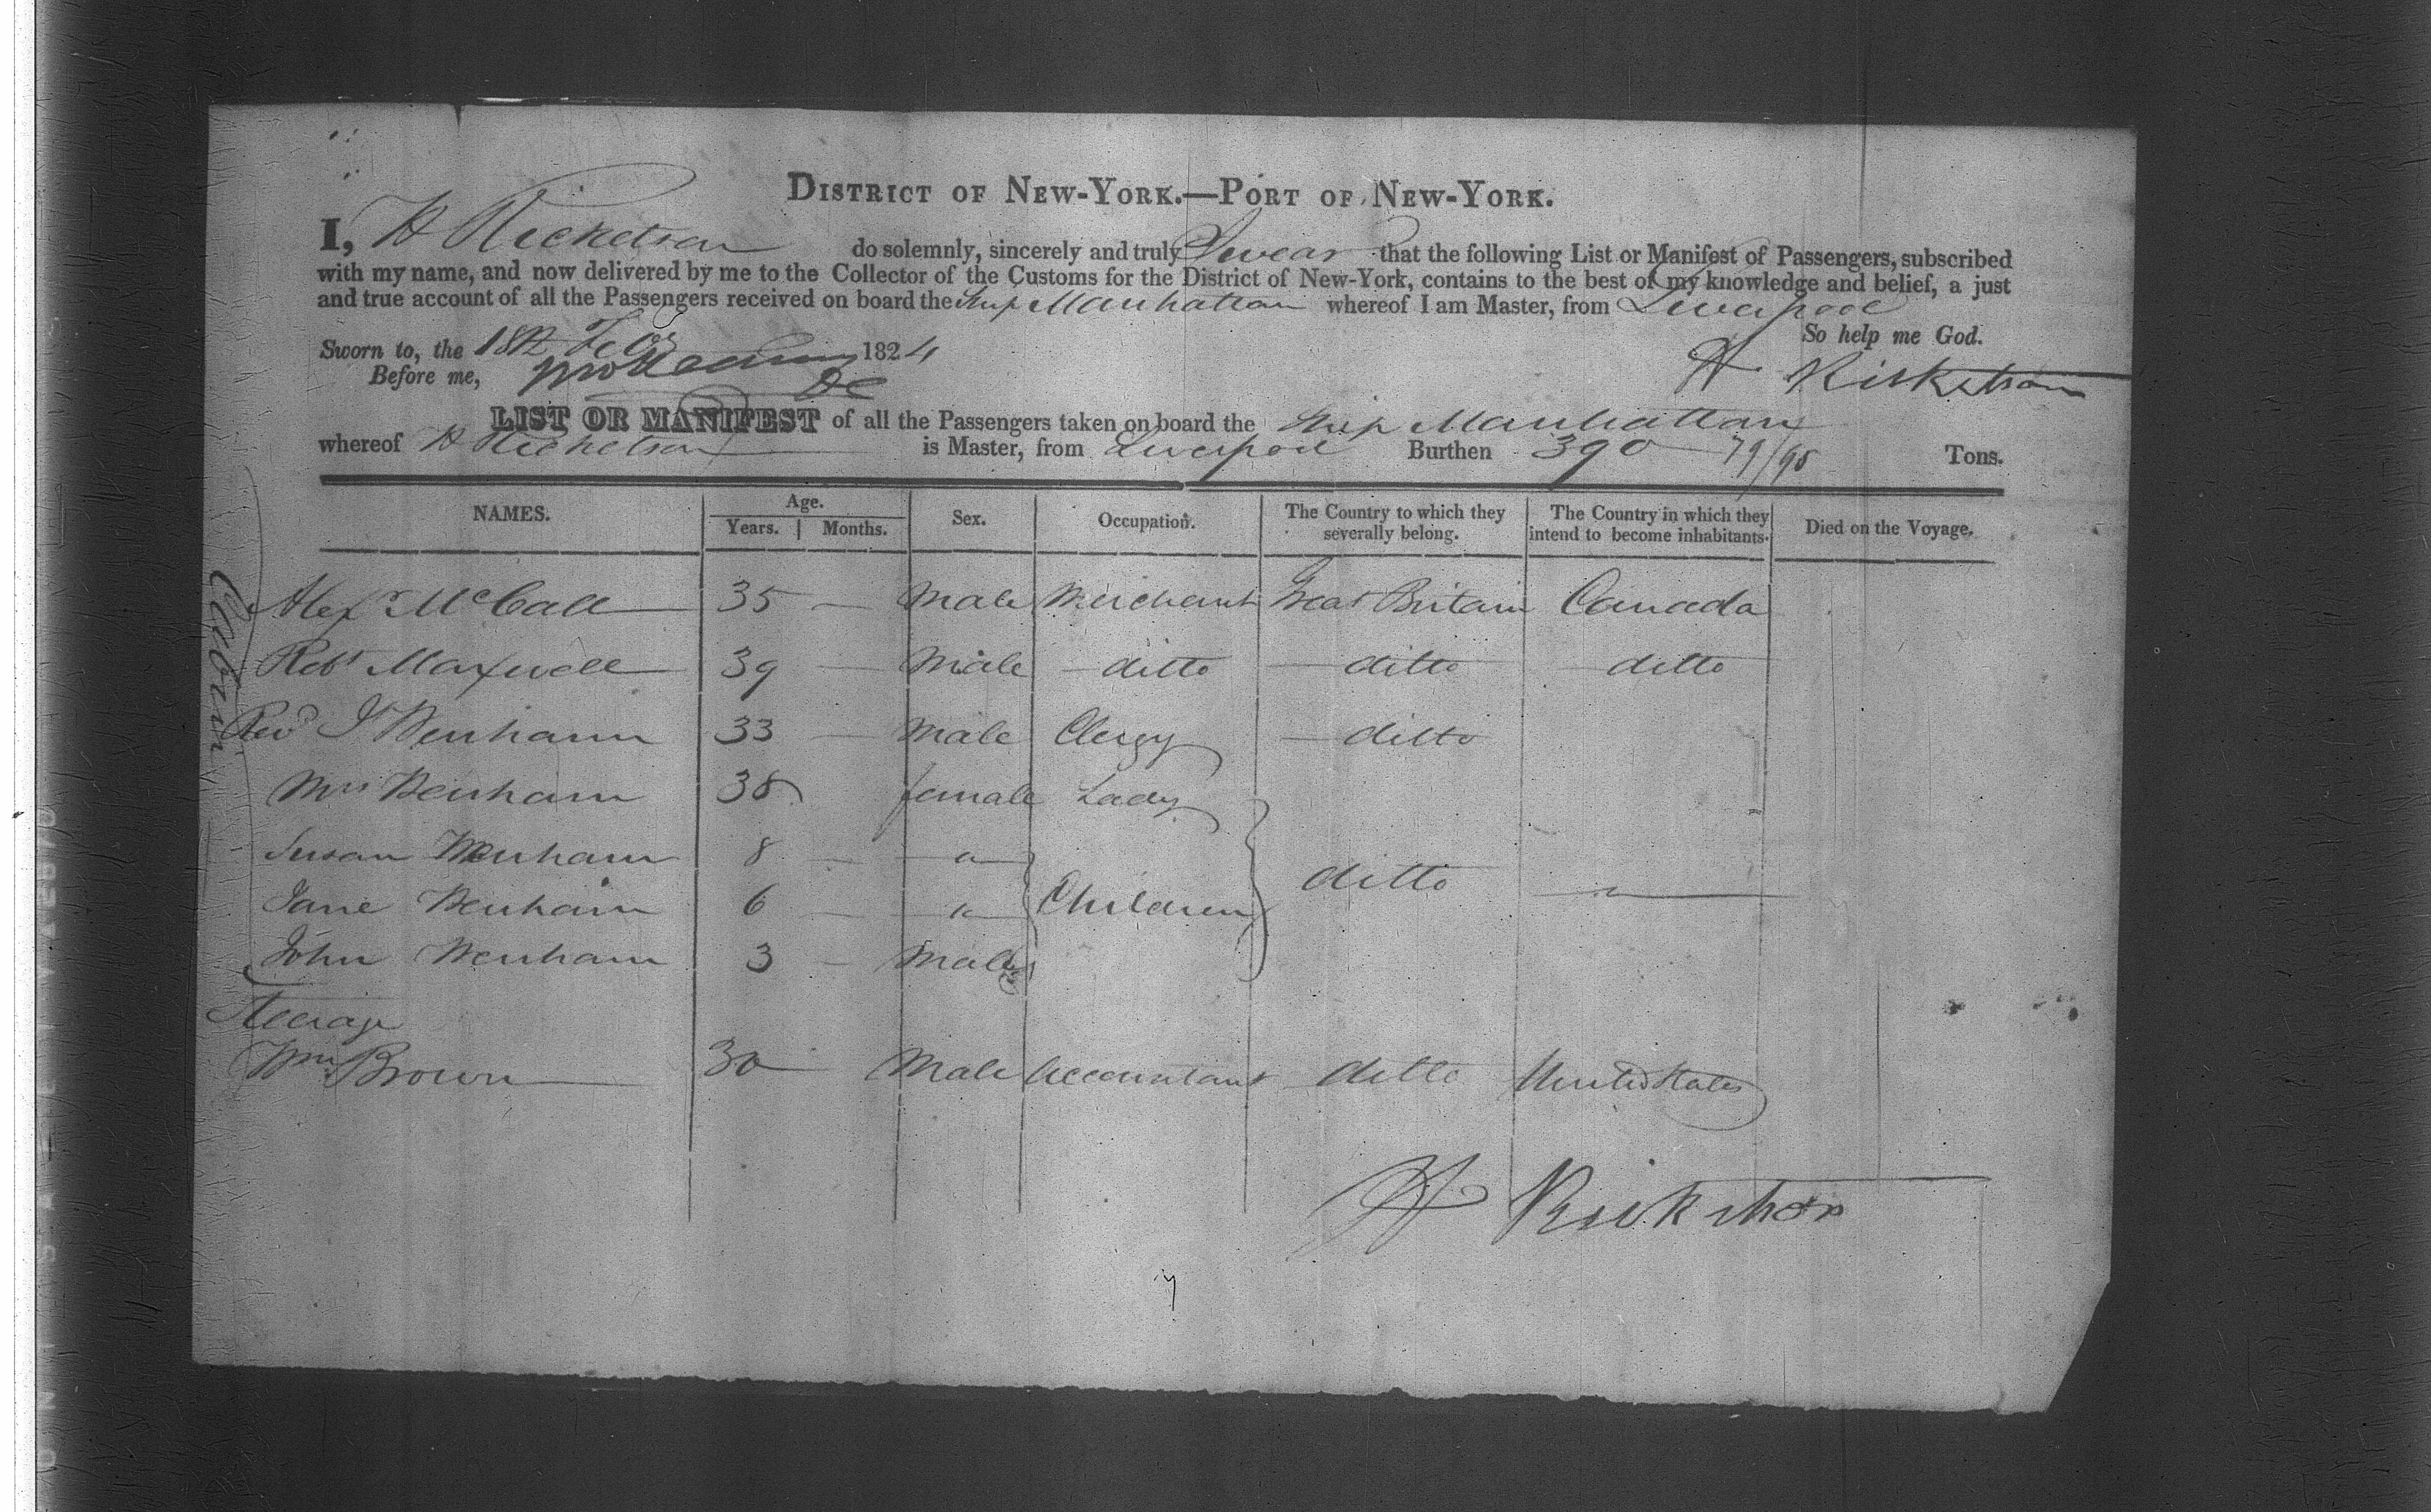 DISTRICT OF NEW-YORK.—PORT OF NEW-YORK.
I, H Ricketson do solemnly, sincerely and truly Swear that the following List or Manifest of Passengers, subscribed
with my name, and now delivered by me to the Collector of the Customs for the District of New-York, contains to the best of my knowledge and belief, a just
and true account of all the Passengers received on board the Ship Manhattan whereof I am Master, from Liverpool
So help me God.
Sworn to, the 18th Feb 1824
Before me,
H Ricketson
LIST OR MANIFEST of all the Passengers taken on board the Ship Manhattan
whereof H Ricketson is Master, from Liverpool Burthen 390 79/95 Tons.
NAMES. Age. Years. Months. Sex. Occupation. The Country to which they severally belong. The Country in which they intend to become inhabitants. Died on the Voyage.
Cabin
Alexr McCall 35 — Male Merchant Great Britain Canada
Robt Maxwell 39 — Male ditto ditto ditto
Revd J Wenham 33 — Male Clergy ditto
Mrs Wenham 38 female Lady
Susan Wenham 8 — "
Jane Wenham 6 — " Children ditto "
John Wenham 3 — Male
Steerage
Wm Brown 30 Male Accountant ditto United States
H Ricketson